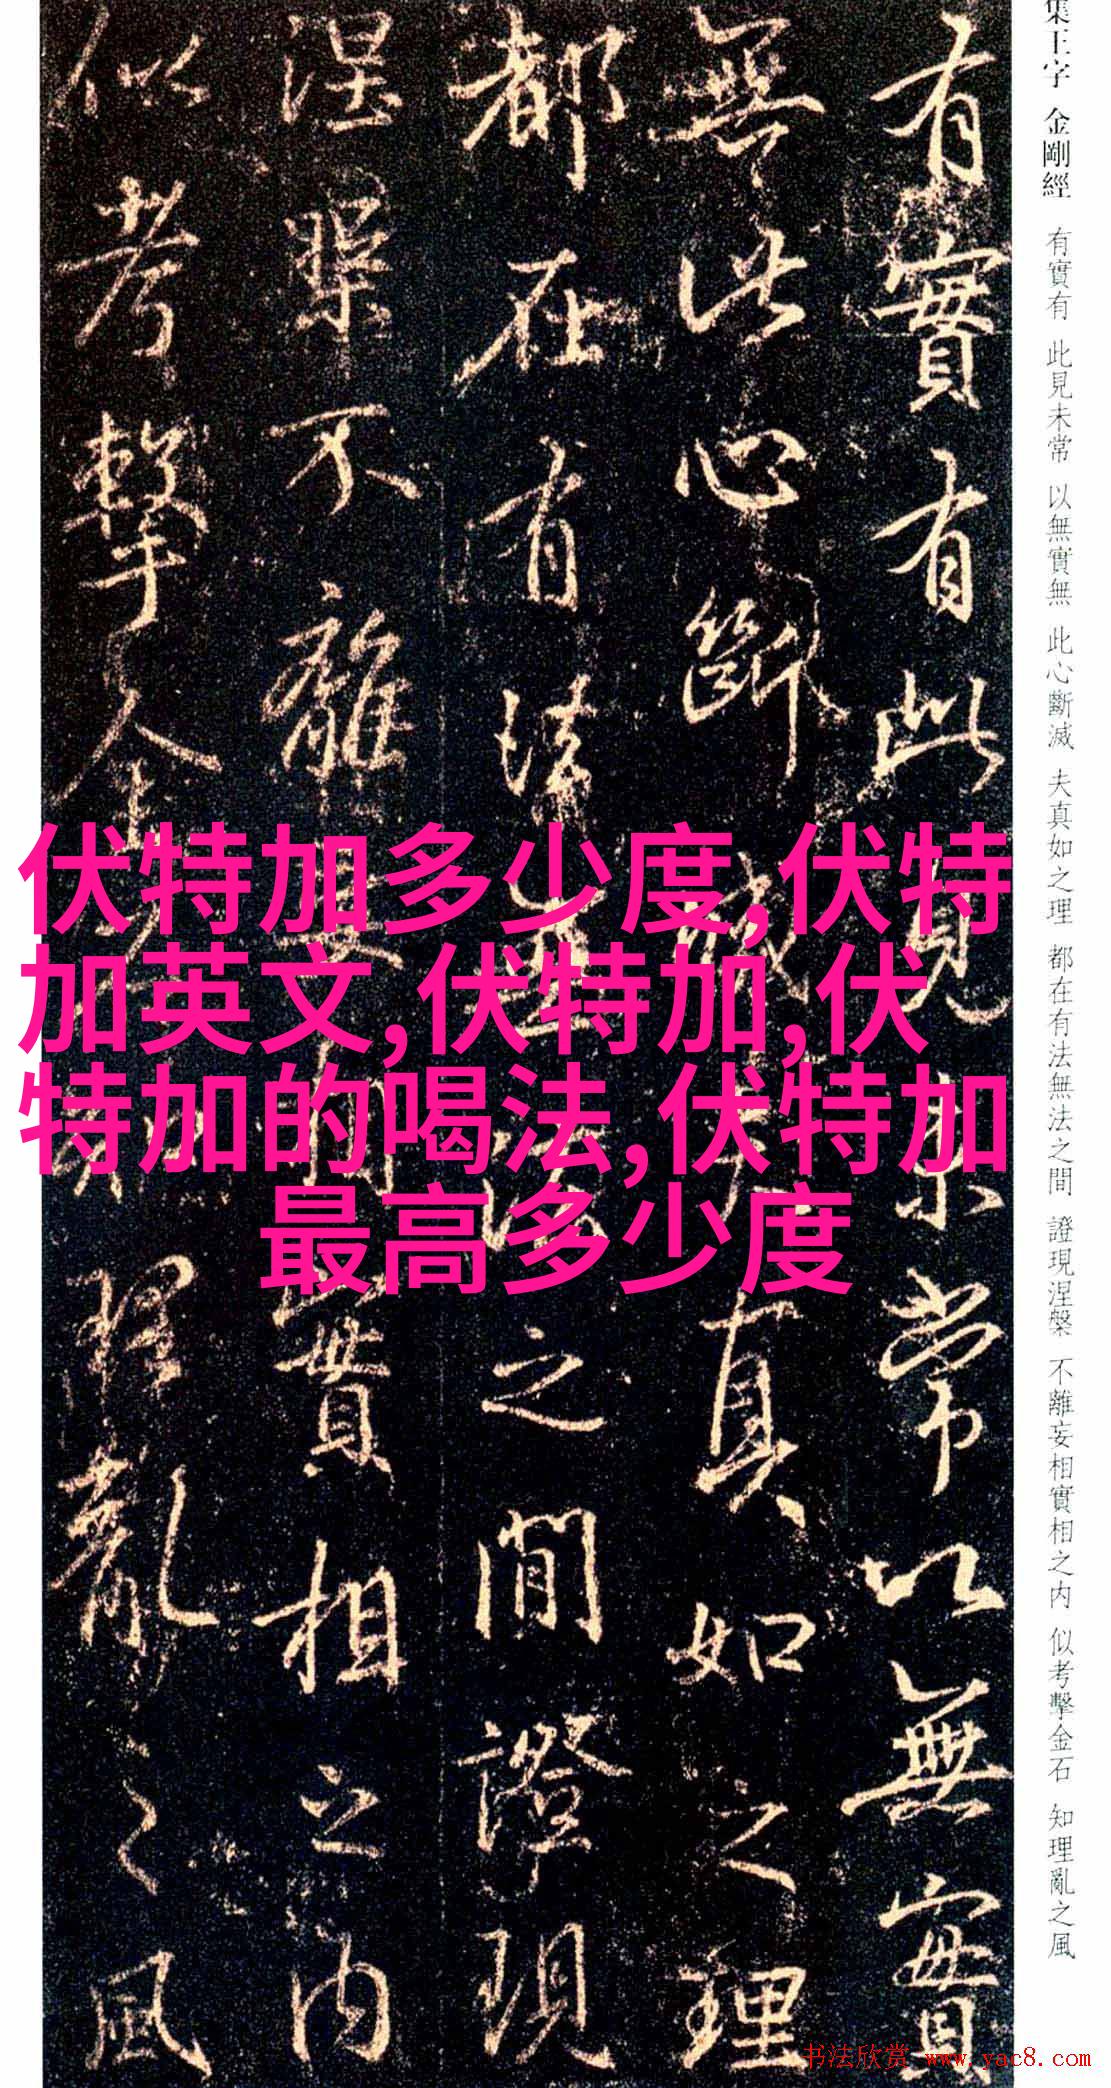 集王字 金剛經 有實有 此見未常 以無實無 此心斷滅 夫真如之理 都在有法無法之間 證現涅槃 不離妄相實相之内 似考擊金石 知理亂之風
有實有此見未常以無實
無此心斷滅夫真如之理
都在有法無法之間證現
涅槃不離妄相實相之内
似考擊金石知理亂之風
伏特加多少度,伏特
加英文,伏特加,伏
特加的喝法,伏特加
最高多少度
书法欣赏 www.yac8.com